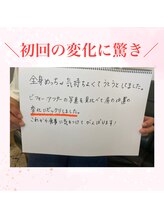 初回の変化に驚き
全身めっちゃ気持ちよくてうとうとしました。
ビフォーアフターの写真を見比べて肩の位置の
変化にびっくりしました。
これから食事に気をつけてがんばります!